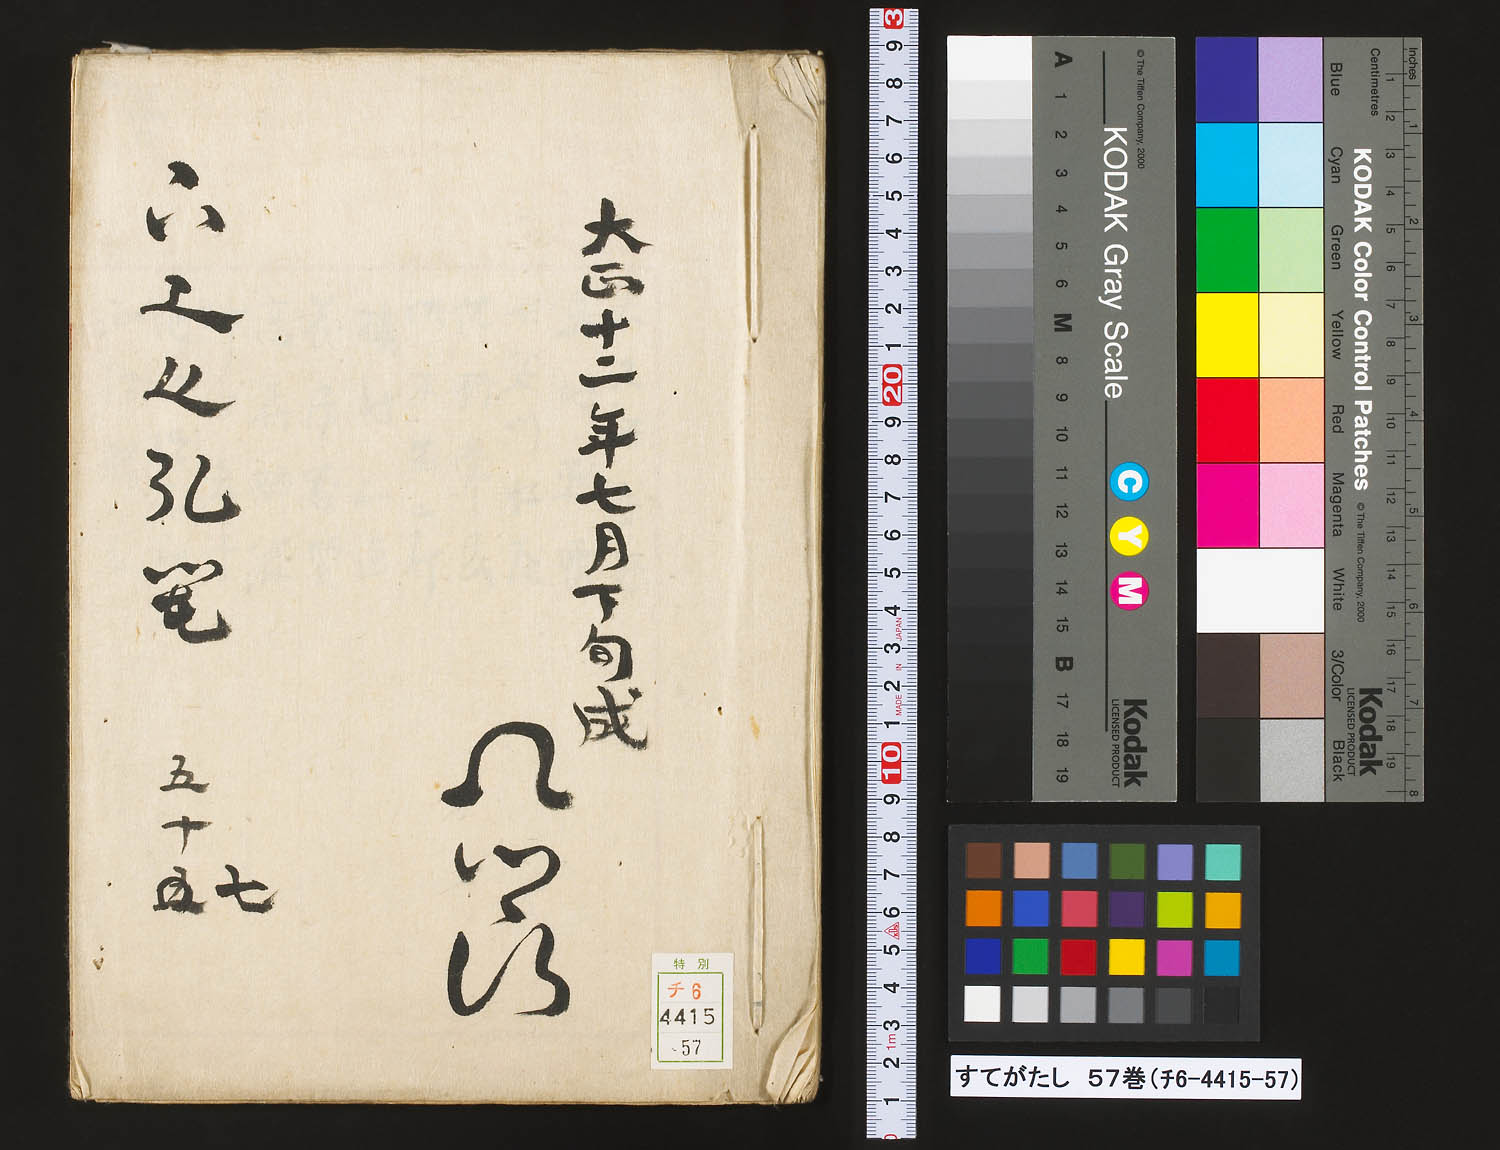 大正十二年七月下旬成
五十五
七
特別
チ6
4415
57
3
9
8
7
6
5
4
3
2
1
20
9
8
7
6
5
4
3
2
1
10
9
8
7
6
5
4
3
2
1
MADE IN JAPAN
1m
© The Tiffen Company, 2000
KODAK Gray Scale
C Y M
Kodak
LICENSED PRODUCT
A 1 2 3 4 5 6 M 8 9 10 11 12 13 14 15 B 17 18 19
Inches 1 2 3 4 5 6 7 8
Centimetres 1 2 3 4 5 6 7 8 9 10 11 12 13 14 15 16 17 18 19
KODAK Color Control Patches © The Tiffen Company, 2000
Kodak
LICENSED PRODUCT
Blue Cyan Green Yellow Red Magenta White 3/Color Black
すてがたし 57巻(チ6-4415-57)